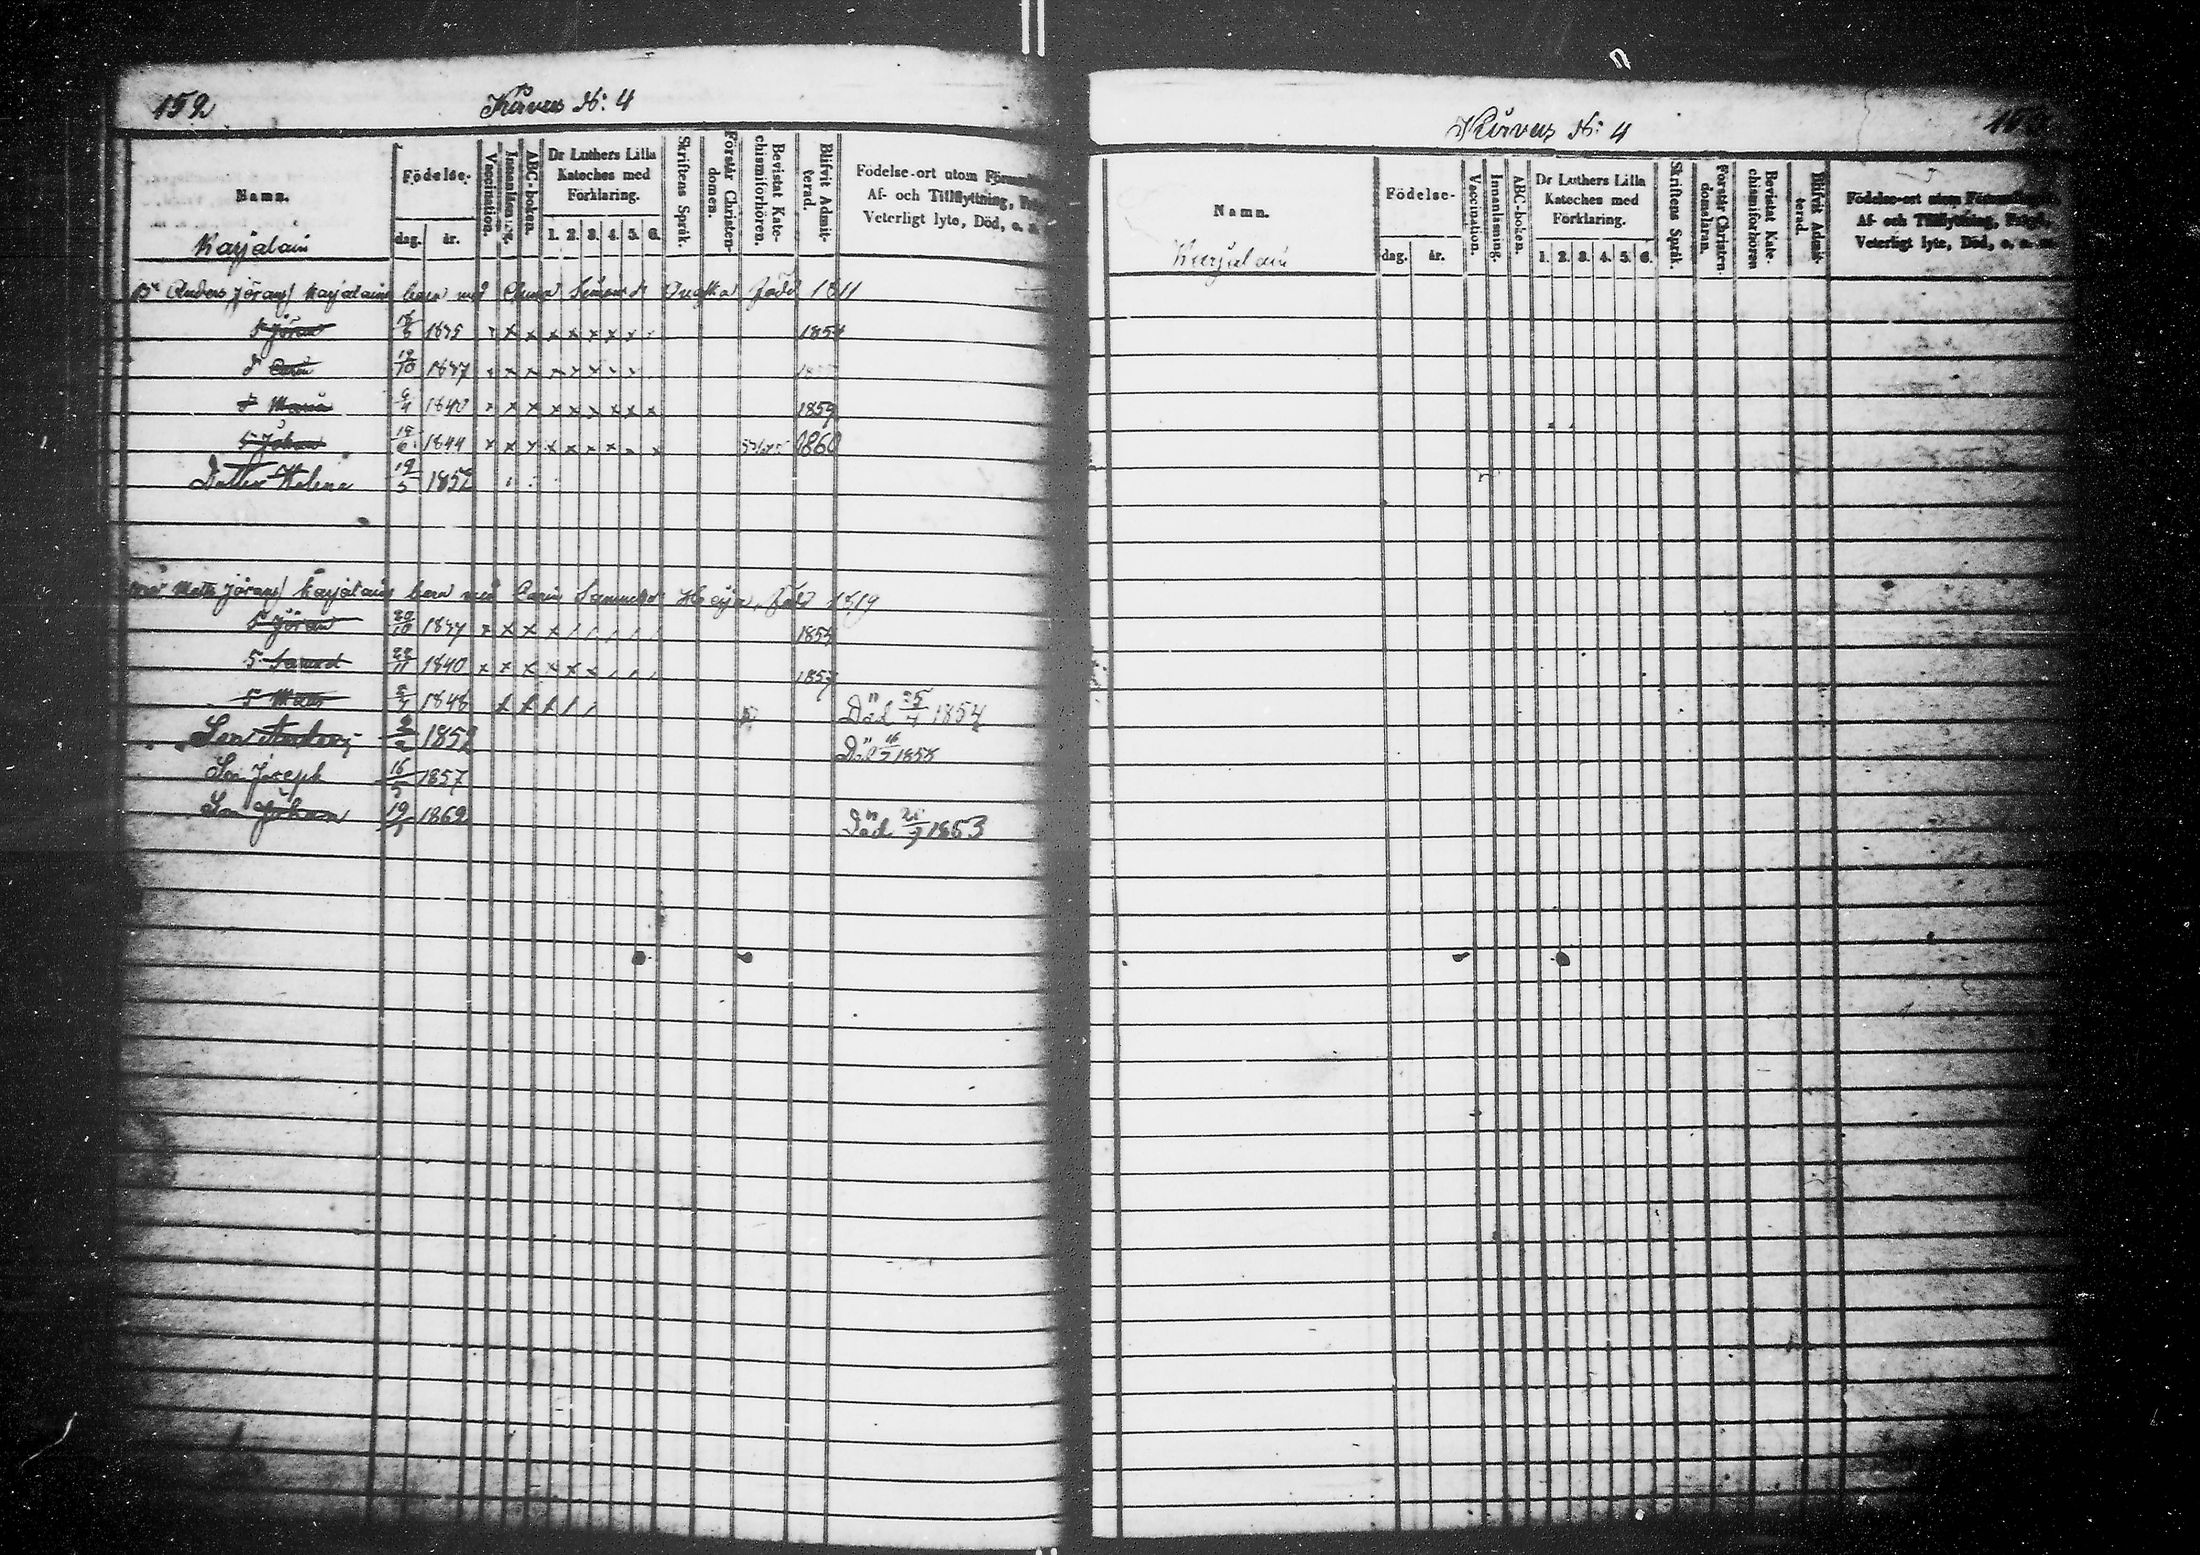 152
Kirvus N: 4
Namn.
Födelse-
dag. år.
Vaccination.
Innanläsning.
ABC-boken.
Dr Luthers Lilla
Kateches med
Förklaring.
1. 2. 3. 4. 5. 6.
Skriftens Språk.
Förstår Christen-
domen.
Bevistat Kate-
chismiförhören.
Blifvit Admit-
terad.
Födelse-ort utom
Af- och Tillflyttning,
Veterligt lyte, Död, o. a.
Karjalain
Anders Jöranss Karjalains barn med Anna född 1811
S Jöran 1835 x x x x x x x 1854
d Carin 19/10 1837 x x x x x
d Maria 1840 x x x x x x x x 1859
S Johan 1844 x x x x x x x 1860
Dotter Helena 19/5 1852
Matts Jöranss Karjalains barn med Carin född 1819
S Jöran 20/10 1837 x x x x
S Samuel 22/11 1840 x x x x x 1857
S Matts 1848 Död 25/4 1854
Son Anders 1852 Död
Son Joseph 16/5 1857
Son Johan 19/1 1862 Död
Kirvus N: 4
Namn.
Födelse-
dag. år.
Vaccination.
Innanläsning.
ABC-boken.
Dr Luthers Lilla
Kateches med
Förklaring.
1. 2. 3. 4. 5. 6.
Skriftens Språk.
Förstår Christen-
domsläran.
Bevistat Kate-
chismiförhören
Blifvit Admit-
terad.
Födelse-ort utom
Af- och Tillflyttning,
Veterligt lyte, Död, o. a. m.
Karjalain